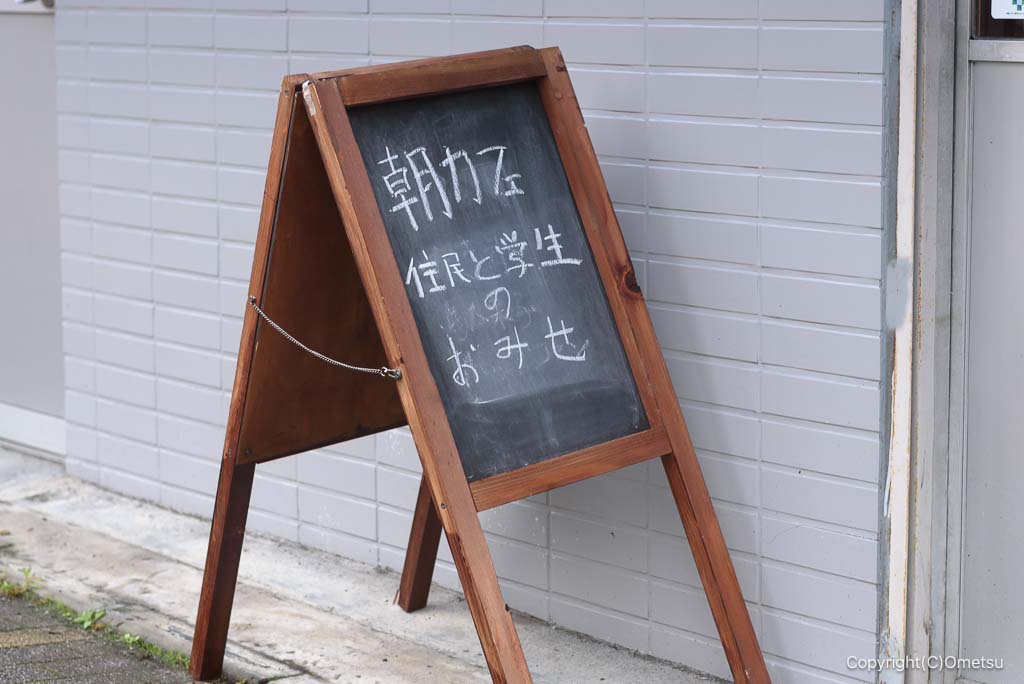 朝カフェ
住民と学生
の
おみせ
Copyright(C)Ometsu